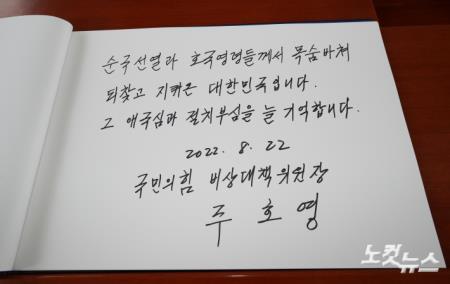 순국선열과 호국영령들께서 목숨바쳐
되찾고 지켜온 대한민국입니다.
그 애국심과 절치부심을 늘 기억합니다.
2022. 8. 22
국민의힘 비상대책위원장
주호영
노컷뉴스